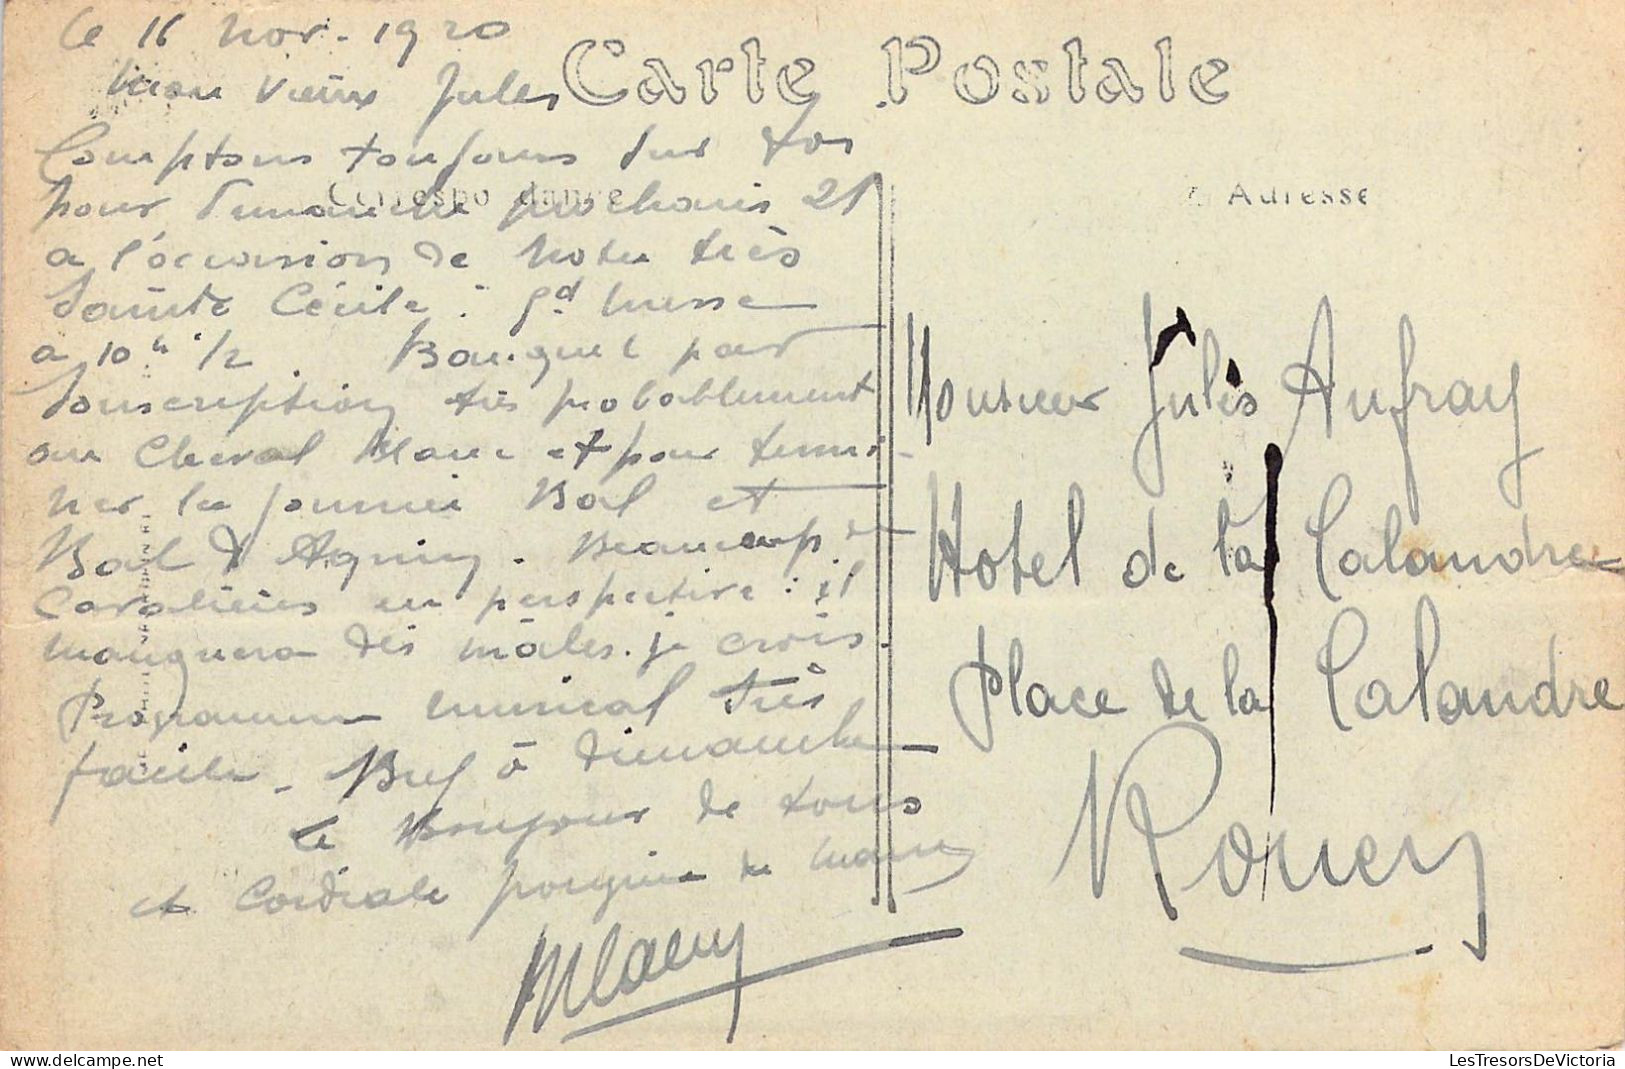 Le 16 Nov. 1920
Mon vieux Jules
Comptons toujours sur toi
pour dimanche prochain 21
a l'occasion de notre très
Sainte Cécile : gd messe
a 10h 1/2. Banquet par
Souscription très probablement
au Cheval Blanc et pour termi-
ner la journée Bal et
Bal d'. Beaucoup de
Cavalières en perspective : il
manquera des mâles. je crois.
Programme musical très
facile. Bref à dimanche
Le Bonjour de tous
et Cordiale poignée de main
Carte Postale
Correspondance
Adresse
Monsieur Jules Aufray
Hotel de la Calandre
Place de la Calandre
Rouen
LesTresorsDeVictoria
www.delcampe.net